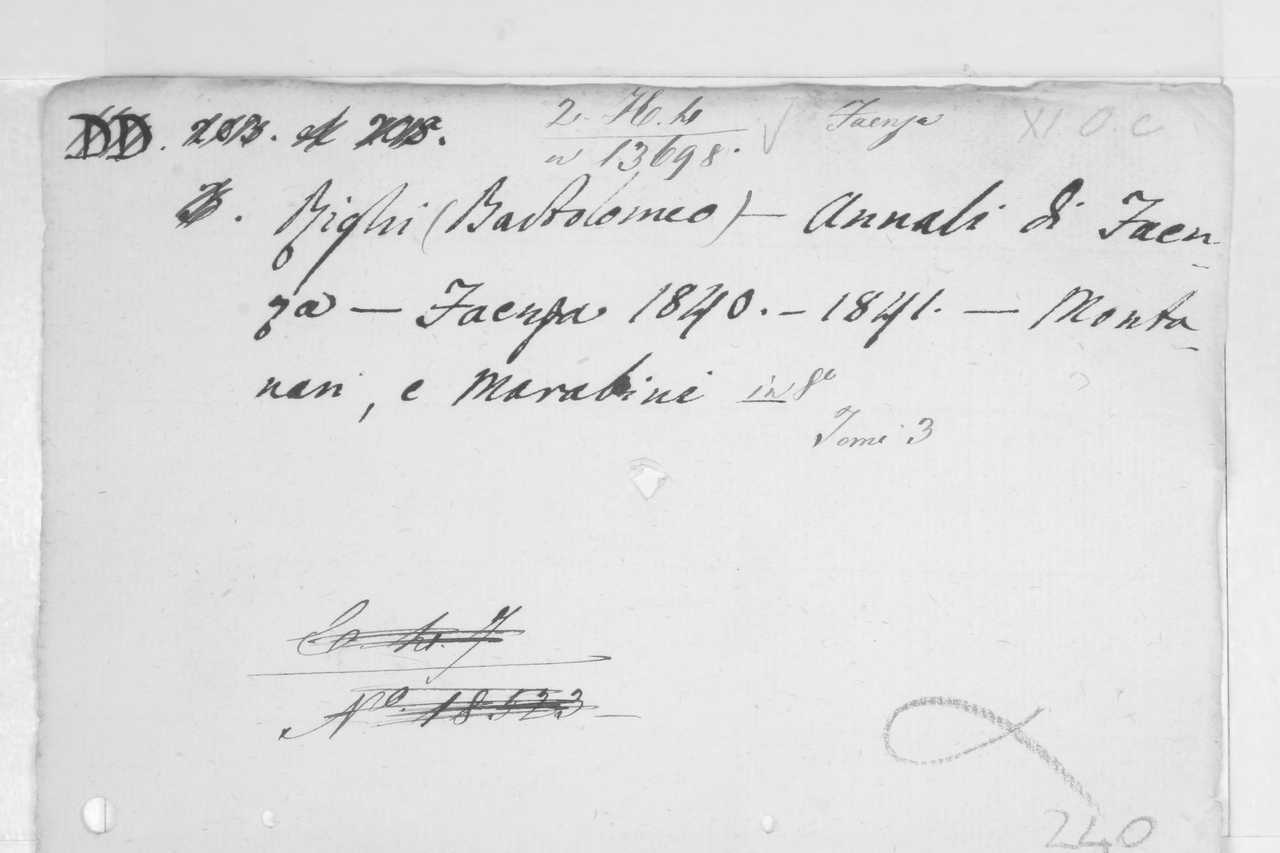 DD. 213. A 215. 2. H. h Faenza XI. O. C
n 13698.
Righi (Bartolomeo) — Annali di Faen-
za — Faenza 1840. - 1841. — Monta-
nari, e Marabini in 8º
Tomi 3
Nº. 18523
240